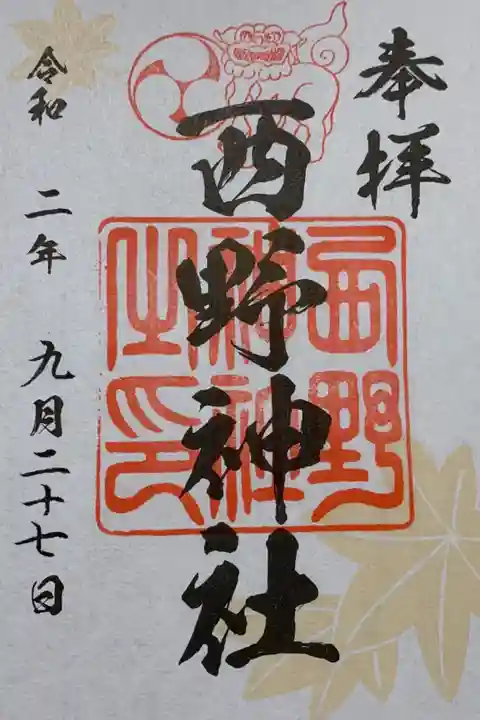 奉拝
西野神社
西野神社之印
令和 二年 九月二十七日